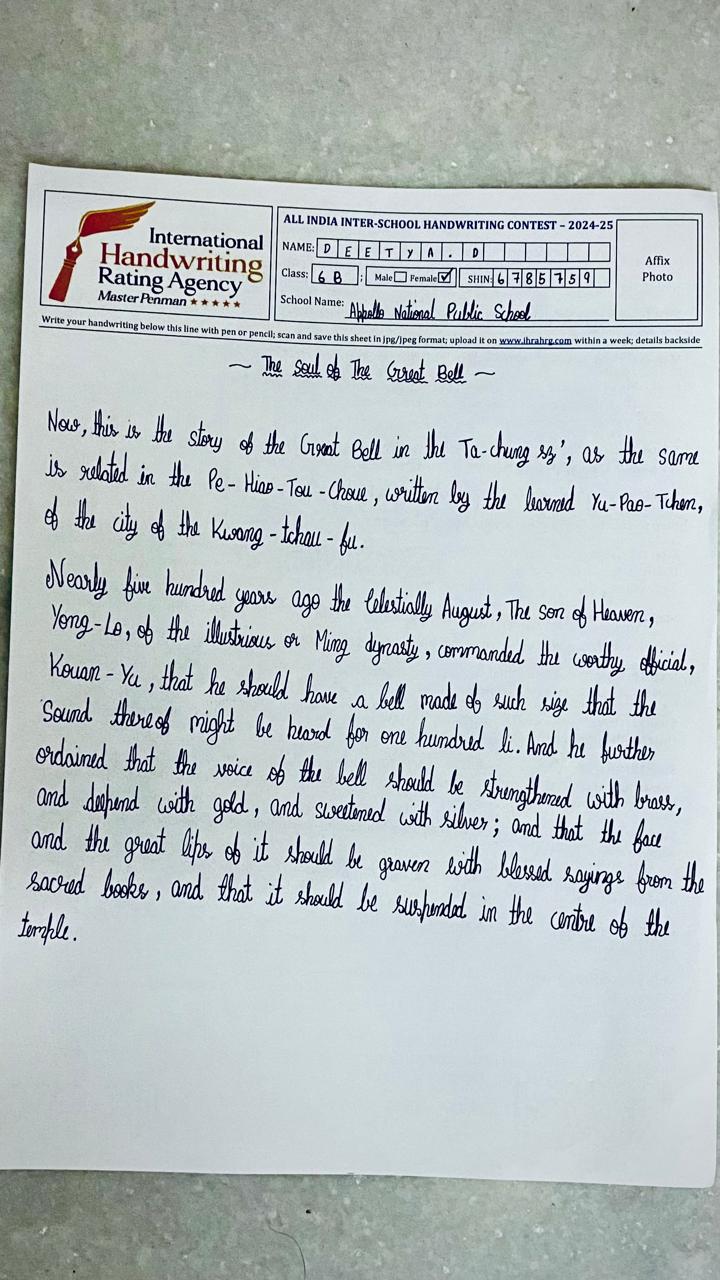 International
Handwriting
Rating Agency
Master Penman ★★★★★
ALL INDIA INTER-SCHOOL HANDWRITING CONTEST – 2024-25
NAME: DEETYA. D
Class: 6 B ; Male ☐ Female ☑ SHIN: 6785759
School Name: Appollo National Public School
Affix
Photo
Write your handwriting below this line with pen or pencil; scan and save this sheet in jpg/jpeg format; upload it on www.ihrahrg.com within a week; details backside
~ The Soul of The Great Bell ~
Now, this is the story of the Great Bell in the Ta-chung sz', as the same
is related in the Pe-Hiao-Tou-Choue, written by the learned Yu-Pao-Tchen,
of the city of the Kwang-tchau-fu.
Nearly five hundred years ago the Celestially August, The son of Heaven,
Yong-Lo, of the illustrious or Ming dynasty, commanded the worthy official,
Kouan-Yu, that he should have a bell made of such size that the
Sound thereof might be heard for one hundred li. And he further
ordained that the voice of the bell should be strengthened with brass,
and deepend with gold, and sweetened with silver; and that the face
and the great lips of it should be graven with blessed sayings from the
sacred books, and that it should be suspended in the centre of the
temple.